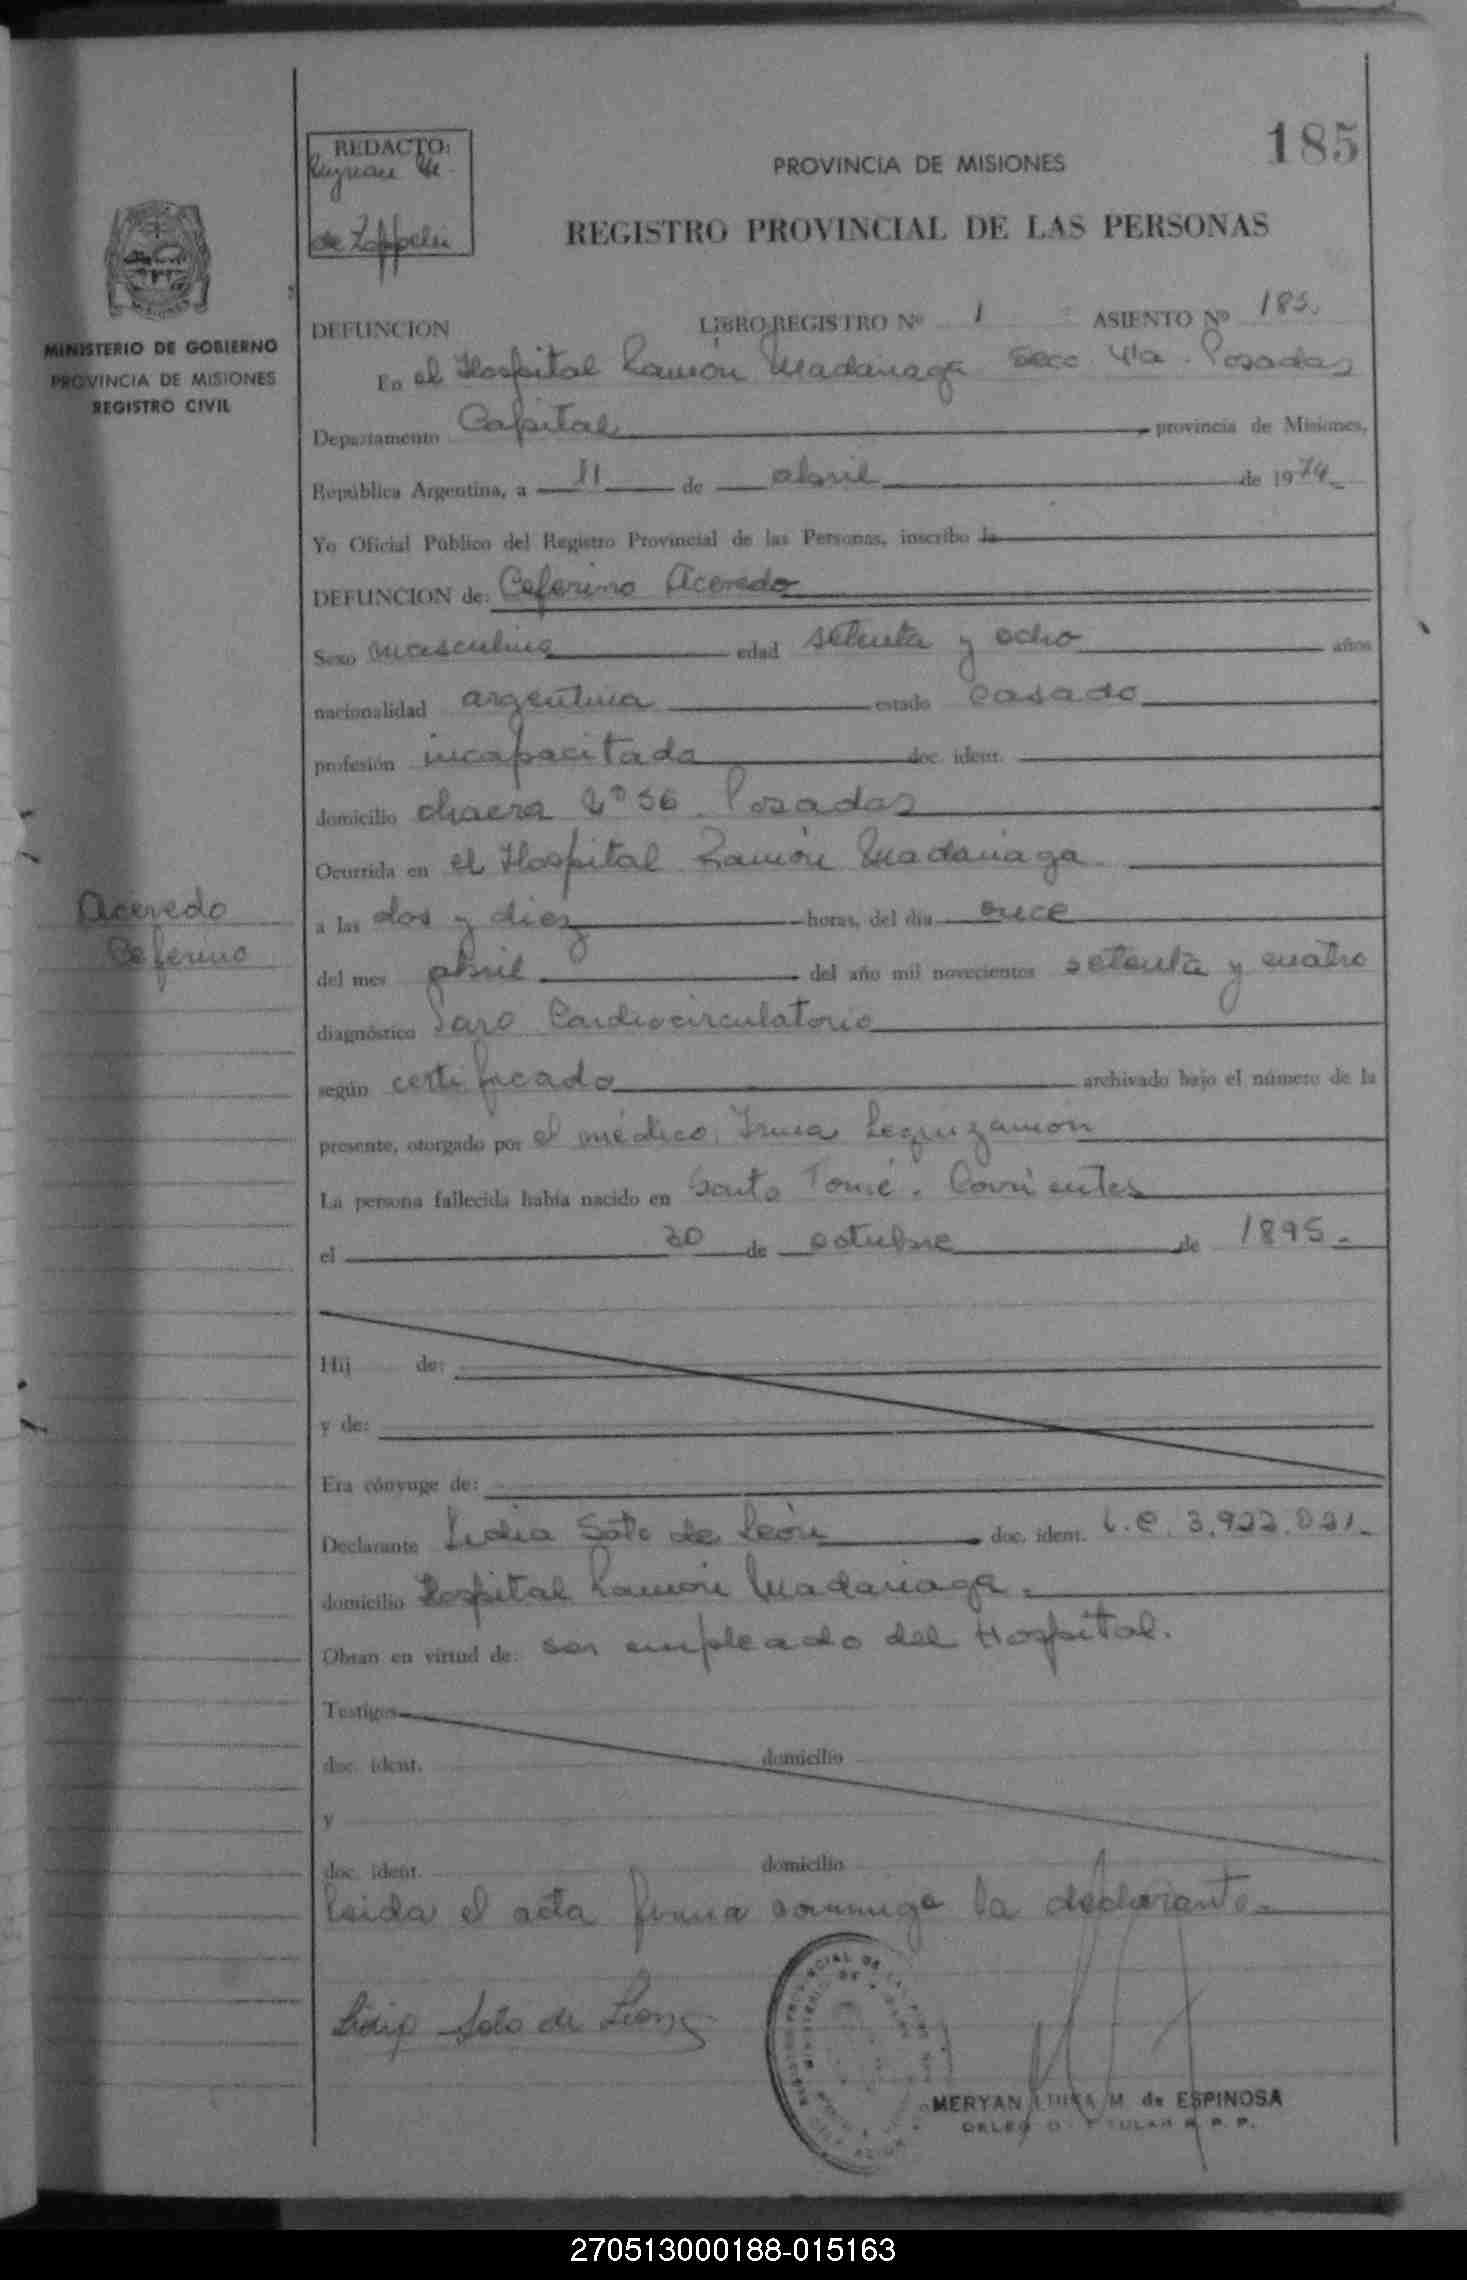 185
REDACTO:
de Zoppelu
PROVINCIA DE MISIONES
REGISTRO PROVINCIAL DE LAS PERSONAS
MINISTERIO DE GOBIERNO
PROVINCIA DE MISIONES
REGISTRO CIVIL
DEFUNCION LIBRO REGISTRO Nº 1 ASIENTO Nº 185.
En el Hospital Ramón Madariaga Secc 4ta. Posadas
Departamento Capital provincia de Misiones,
República Argentina, a 11 de abril de 1974
Yo Oficial Público del Registro Provincial de las Personas, inscribo la
DEFUNCION de: Ceferino Acevedo
Sexo masculino edad setenta y ocho años
nacionalidad argentina estado casado
profesión incapacitado doc. ident.
domicilio chacra Nº 56. Posadas
Ocurrida en el Hospital Ramón Madariaga
Acevedo
Ceferino
a las dos y diez horas, del día once
del mes abril del año mil novecientos setenta y cuatro
diagnóstico Paro Cardiocirculatorio
según certificado archivado bajo el número de la
presente, otorgado por el médico, Irma Leguizamón
La persona fallecida había nacido en Santo Tomé. Corrientes
el de octubre de 1895.
Hij de:
y de:
Era cónyuge de:
Declarante Lidia Soto de León doc. ident. L.C. 3.922.021.
domicilio Hospital Ramón Madariaga.
Obran en virtud de: ser empleado del Hospital.
Testigos
doc. ident. domicilio
y
doc. ident. domicilio
Leida el acta firma conmigo la declarante.
Lidia Soto de León
MERYAN LUISA M. de ESPINOSA
270513000188-015163